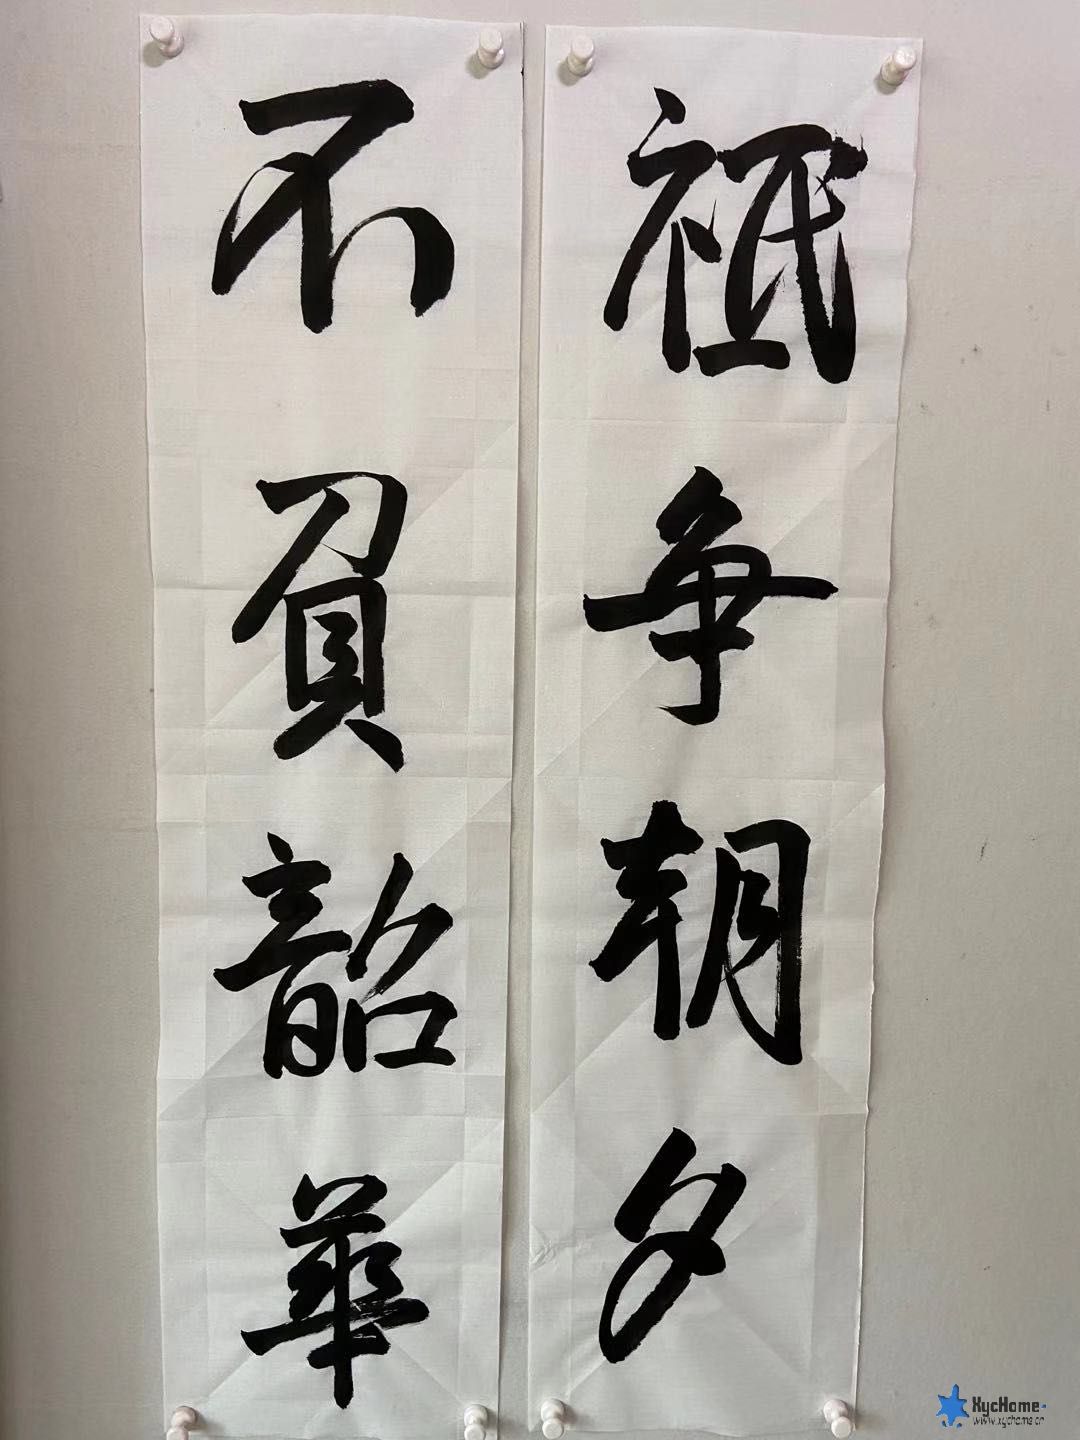 祗争朝夕
不負韶華
XycHome
www.xychome.cn